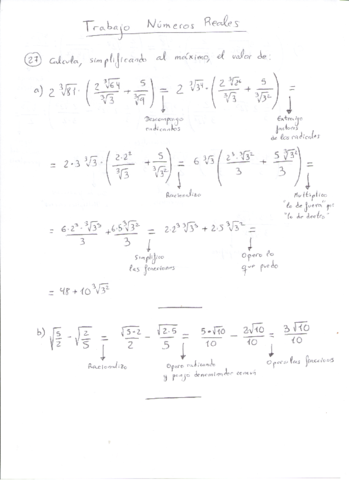 Trabajo Números Reales
27) Calcula, simplificando al máximo, el valor de:
a) 2∛81 · (2∛64/∛3 + 5/∛9) = 2∛3⁴ · (2∛2⁶/∛3 + 5/∛3²) =
Descompongo radicandos
Extraigo factores de los radicales
= 2·3∛3 · (2·2²/∛3 + 5/∛3²) = 6∛3 (2³·∛3²/3 + 5∛3/3) =
Racionalizo
Multiplico "lo de fuera" por "lo de dentro"
= 6·2³·∛3³/3 + 6·5∛3²/3 = 2·2³∛3³ + 2·5∛3² =
Simplifico las fracciones
Opero lo que puedo
= 48 + 10∛3²
b) √(5/2) - √(2/5) = √(5·2)/2 - √(2·5)/5 = 5·√10/10 - 2√10/10 = 3√10/10
Racionalizo
Opero radicando y pongo denominador común
Opero las fracciones